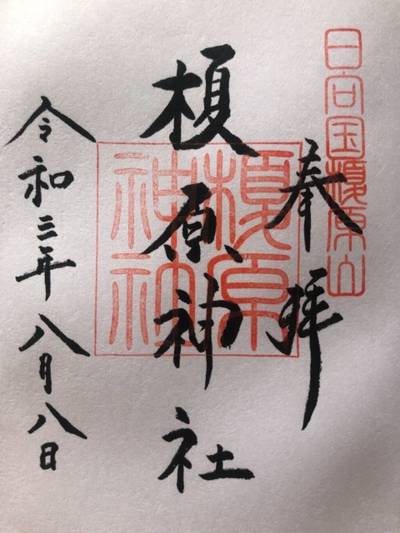 日向国榎原山
奉拝
榎原神社
榎原神社
令和三年八月八日